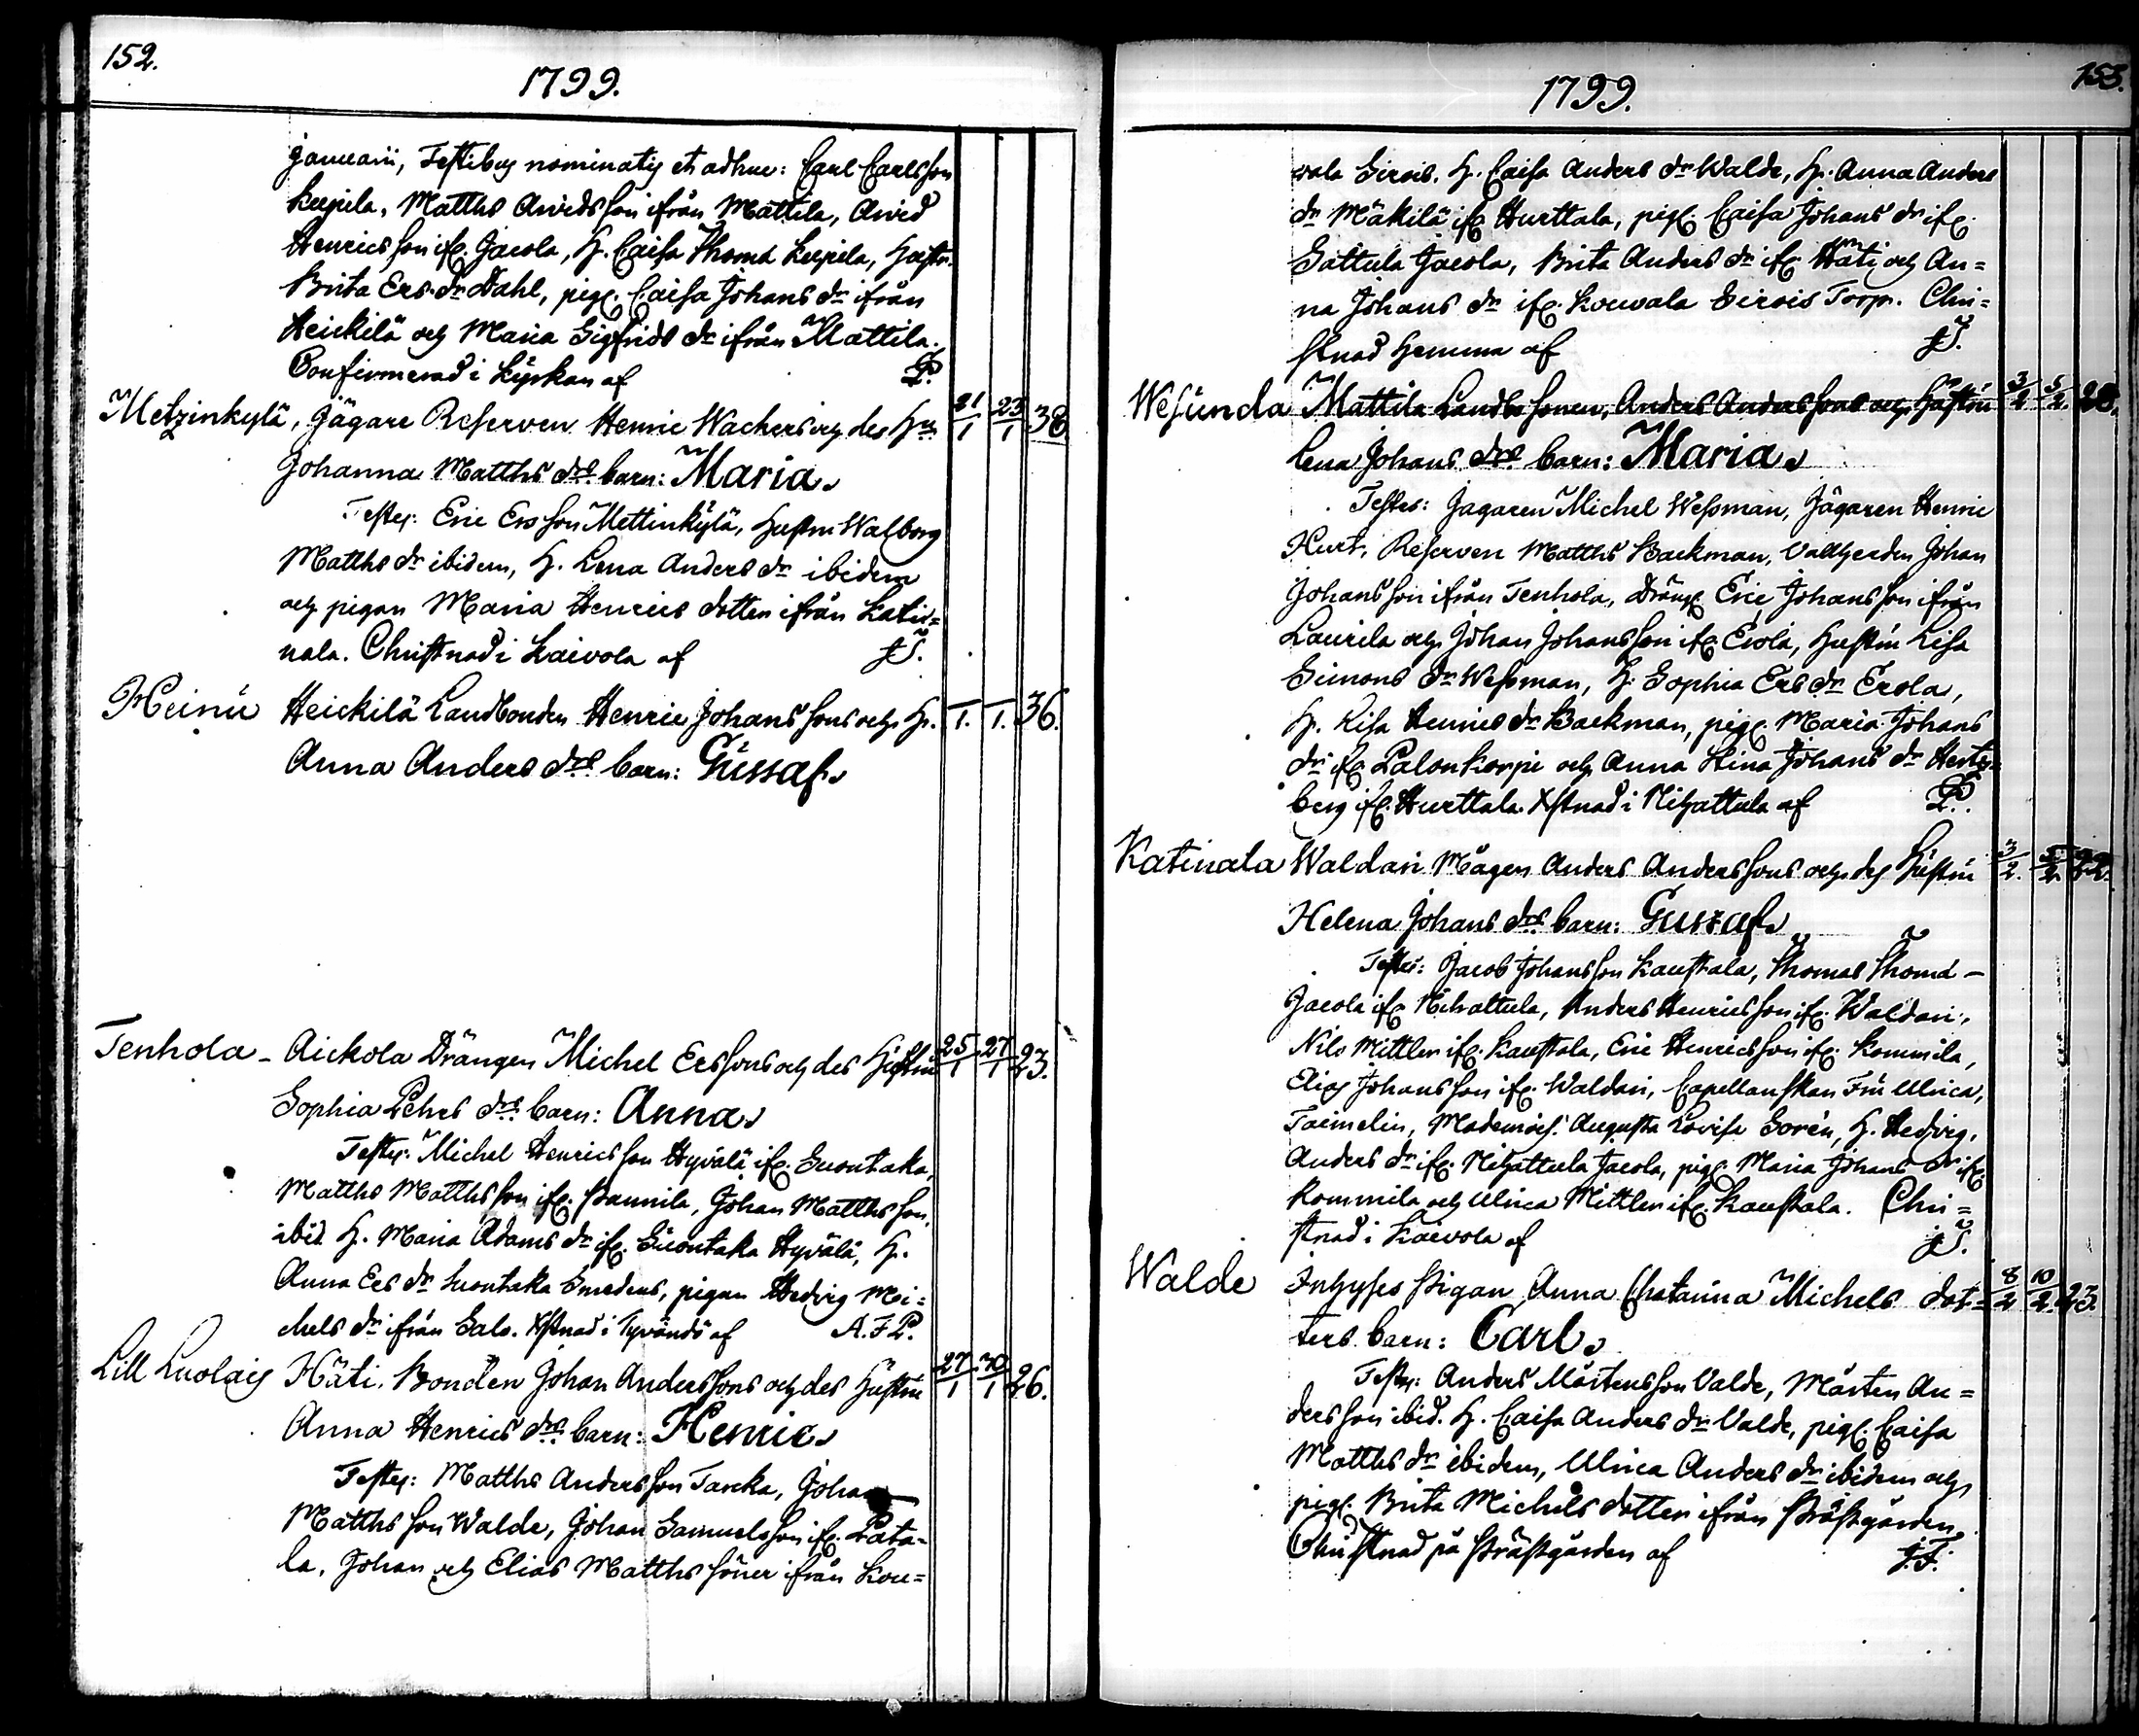 152.
1799.
Januarii, Testibus nominatis et adhuc: Carl Carlsson
Lepila, Matths Arvidsson ifrån Mattila, Arvid
Henricsson ifr. Jacola, H. Caisa Thomæ Lepila, Hustr.
Brita Ers dr Dahl, pig. Caisa Johans dr ifrån
Heickilä och Maria Sigfrids dr ifrån Mattila.
Confirmerad i Kyrkan af P.
Metzinkylä, Jägare Reserven Henric Wackers och des Hu
Johanna Matths drs barn: Maria. 21/1 23/1 38.
Testes: Eric Ersson Mettinkylä, Hustru Walborg
Matths dr ibidem, H. Lena Anders dr ibidem
och pigan Maria Henrics dotter ifrån Kati=
nala. Christnad i Kaivola af JT.
Heinu Heickilä Landbonden Henric Johanssons och H. 1. 1. 36.
Anna Anders drs barn: Gustaf.
Tenhola - Aickola Drängen Michel Erssons och des Hustru 25/1 27/1 23.
Sophia Pehrs drs barn: Anna.
Testes: Michel Henricsson Hyvälä ifr. Suontaka,
Matths Matthsson ifr. Paunila, Johan Matthsson,
ibid. H. Maria Adams dr ifr. Suontaka Hyvälä, H.
Anna Ers dr Suontaka Smedens, pigan Hedvig Mi=
chels dr ifrån Salo. Xstnad i Tyvändö af A.F.P.
Lill Luolais Häti. Bonden Johan Anderssons och des Hustru 27/1 30/1 26.
Anna Henrics drs barn: Henric.
Testes: Matths Andersson Tarcka, Johan
Matthsson Walde, Johan Samuelsson ifr. Pata=
la, Johan och Elias Matthssöner ifrån Kou=
1799.
153.
vala Sirois. H. Caisa Anders dr Walde, H. Anna Anders
dr Mäkilä ifr. Hurttala, pig. Caisa Johans dr ifr.
Sattula Jacola, Brita Anders dr ifr. Häti och An=
na Johans dr ifr. Kouvala Sirois Torp. Chri=
stnad hemma af JT.
Wesunda Mattila Landbo Sonen, Anders Anderssons och Hustru 3/2 5/2. 28.
Lena Johans drs barn: Maria.
Testes: Jagaren Michel Wessman, Jägaren Henric
Kurt, Reserven Matths Backman, Vallherden Johan
Johansson ifrån Tenhola, Dräng. Eric Johansson ifrån
Laurila och Johan Johansson ifr. Erola, Hustru Lisa
Simons dr Wessman, H. Sophia Ers dr Erola,
H. Lisa Henrics dr Backman, pig. Maria Johans
dr ifr. Palonkorpi och Anna Stina Johans dr Hertz=
berg ifr. Hurttala. Xstnad i Nihattula af P.
Katinala Waldari Mågen Anders Anderssons och des Hustru 3/2. 5/2 22.
Helena Johans drs barn: Gustaf.
Testes: Jacob Johansson Kaustala, Thomas Thomæ -
Jacola ifr. Nihattula, Anders Henricsson ifr. Waldari,
Nils Mittler ifr. Kaustala, Eric Henricsson ifr. Kommila,
Elias Johansson ifr. Waldari, Capellanskan Fru Ulrica,
Taimelin, Mademois. Augusta Lovisa Sorén, H. Hedvig,
Anders dr ifr. Nihattula Jacola, pig. Maria Johans dr ifr.
Kommila och Ulrica Mittler ifr. Kaustala. Chri=
stnad i Kaivola af JT.
Walde Inhyses Pigan Anna Chatarina Michels dot= 8/2 10/2. 23.
ters barn: Carl.
Testes: Anders Mårtensson Valde, Mårten An=
dersson ibid. H. Caisa Anders dr Valde, pig. Caisa
Matths dr ibidem, Ulrica Anders dr ibidem och
pig. Brita Michels dotter ifrån Prästgården
Christnad på Prästgården af J.T.